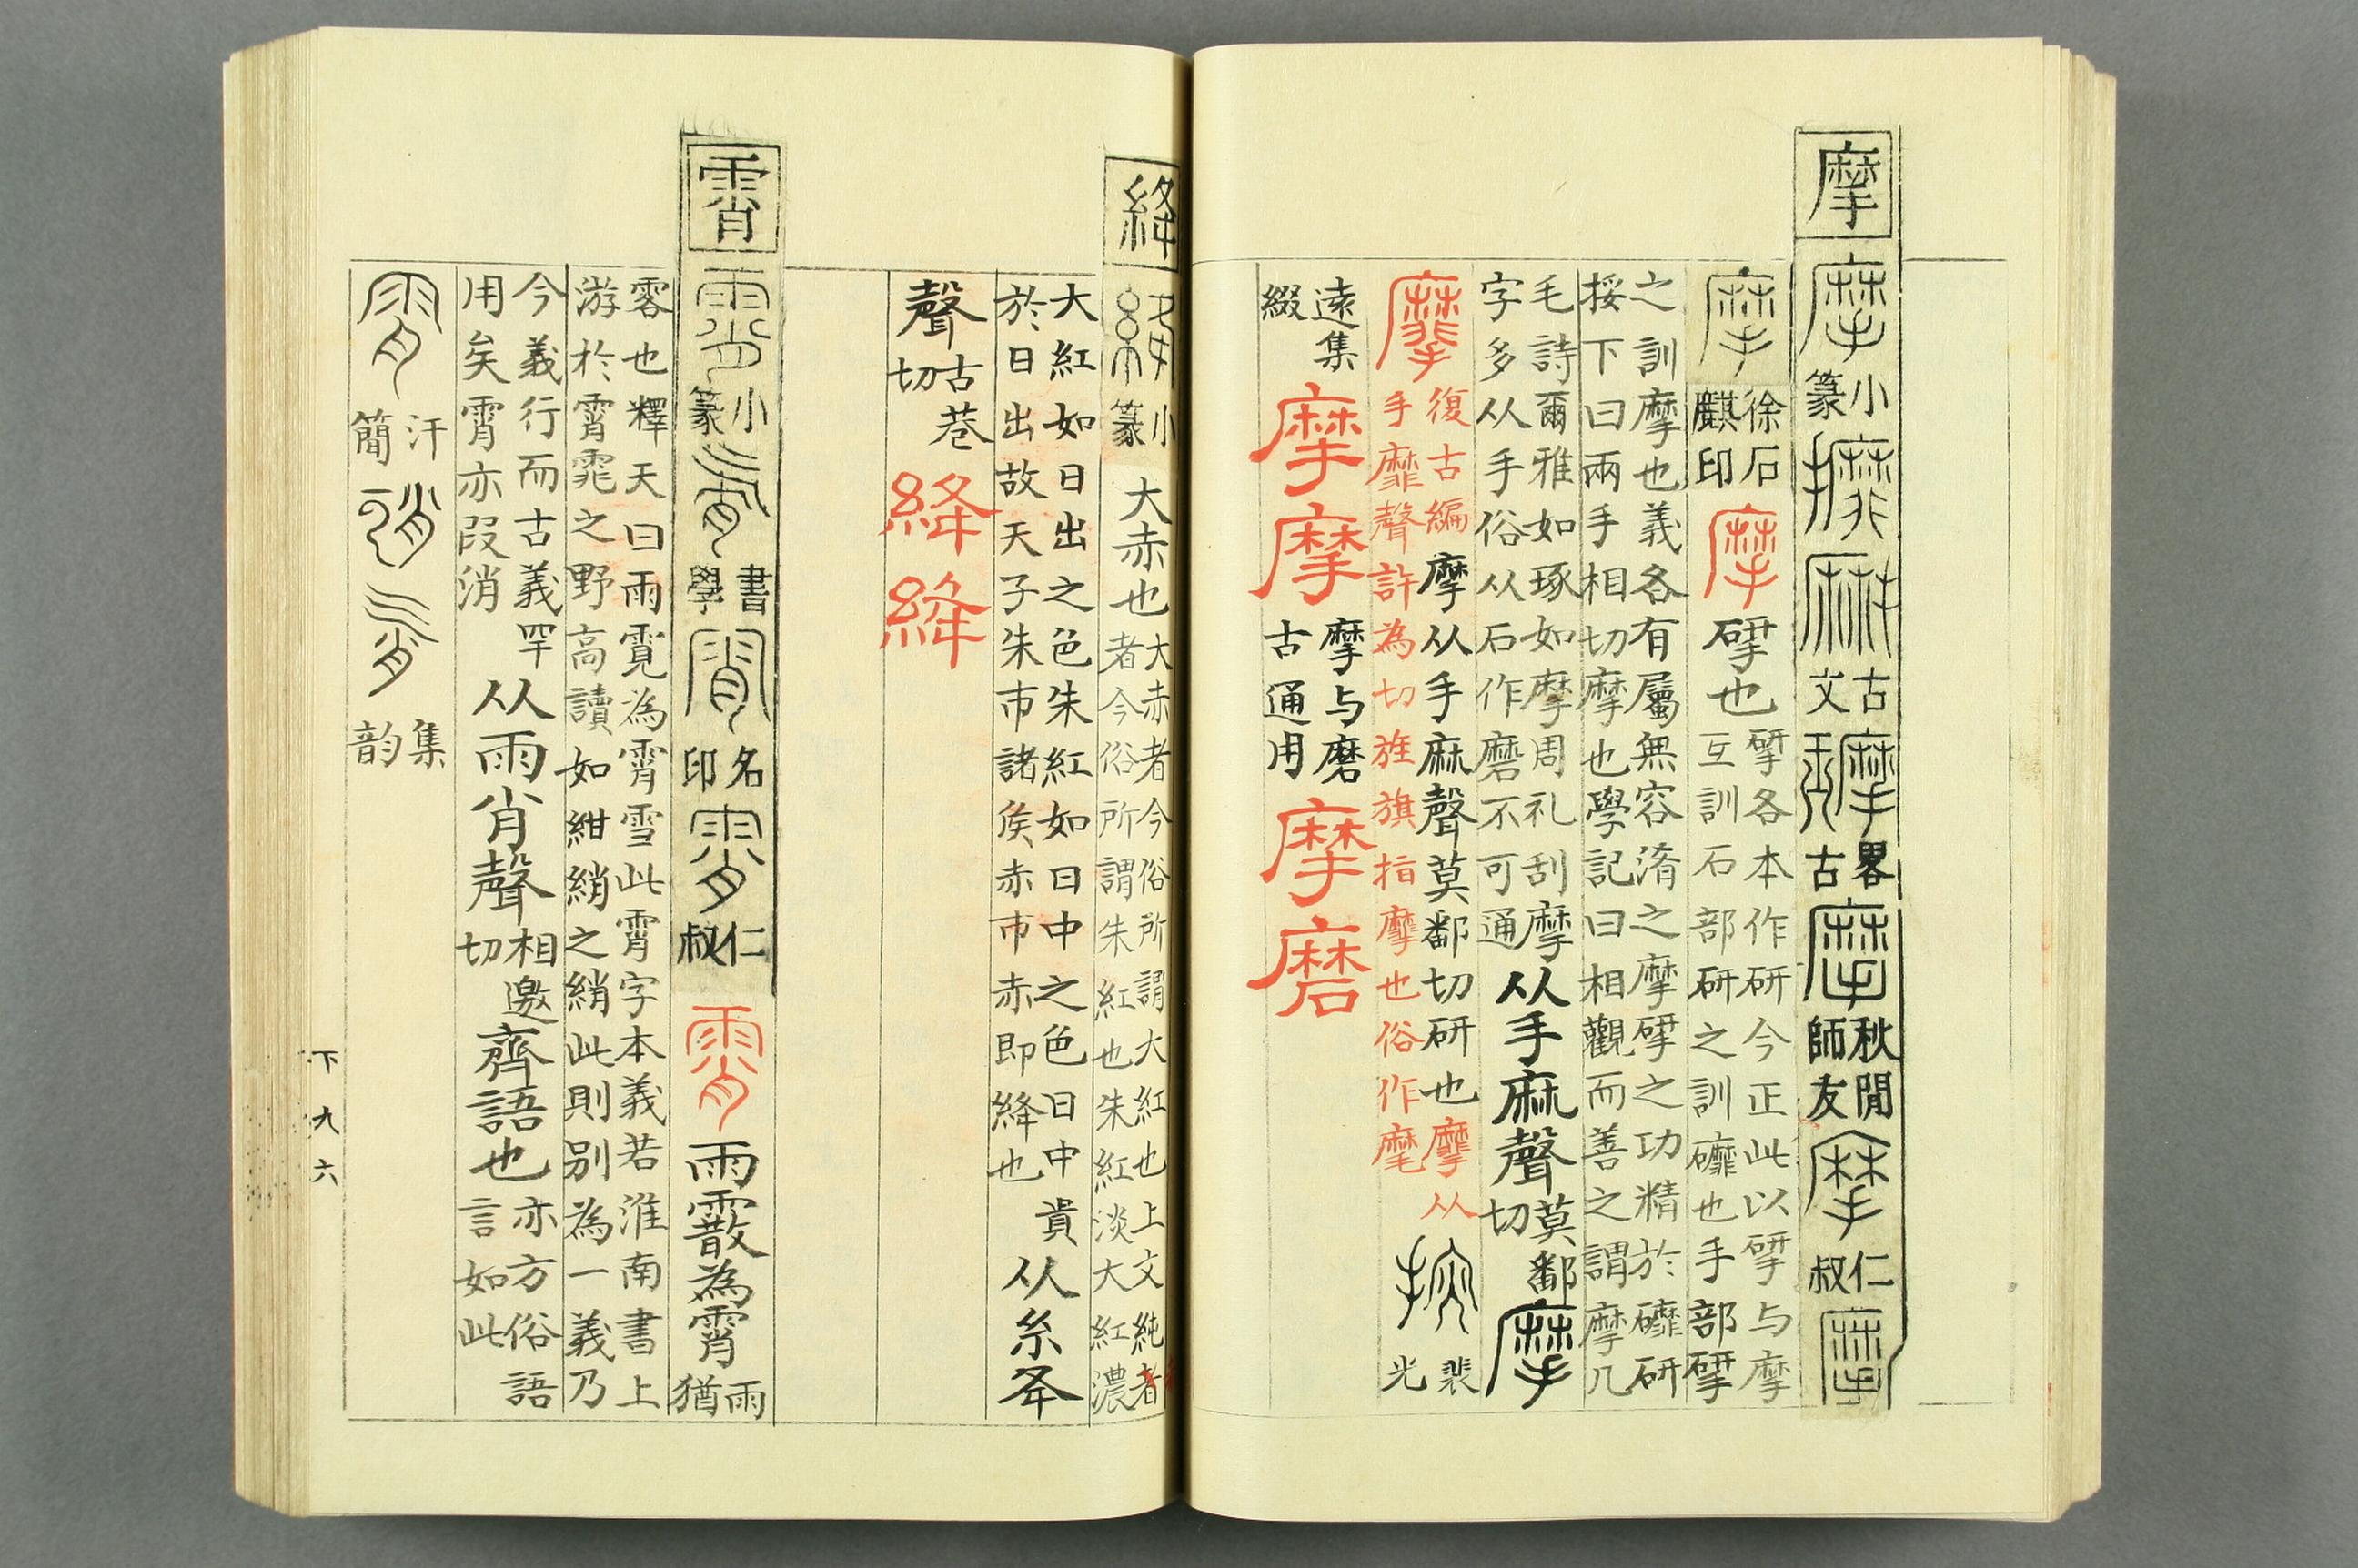 摩 摩 小篆 古文 畧古 摩 秋閒師友 摩 仁叔 摩
摩 徐石麒印 摩 揅也
揅各本作研今正此以揅与摩
互訓石部研之訓䃺也手部揅
之訓摩也義各有屬無容淆之摩揅之功精於䃺研
挼下曰兩手相切摩也學記曰相觀而善之謂摩凡
毛詩爾雅如琢如摩周礼刮摩
字多从手俗从石作磨不可通
从手麻聲 莫鄱切 摩
復古編 摩从手麻聲莫鄱切研也攠从
手靡聲許為切旌旗指攠也俗作麾
裴光
遠集綴 摩 摩 摩与磨古通用 摩 磨
絳 絳 小篆 大赤也
大赤者今俗所謂大紅也上文純者
者今俗所謂朱紅也朱紅淡大紅濃
大紅如日出之色朱紅如日中之色日中貴
於日出故天子朱巿諸侯赤巿赤即絳也
从糸夅
聲 古巷切 絳 絳
霄 霄 小篆 霄 書學 霄 名印 霄 仁叔 霄 雨䨘為霄 雨猶
也釋天曰雨霓為霄雪此霄字本義若淮南書上
游於霄雿之野高讀如紺綃之綃此則別為一義乃
今義行而古義罕
用矣霄亦叚消
从雨肖聲 相邀切 齊語也
亦方俗語
言如此
霄 汗簡 霄 集韵
下九六